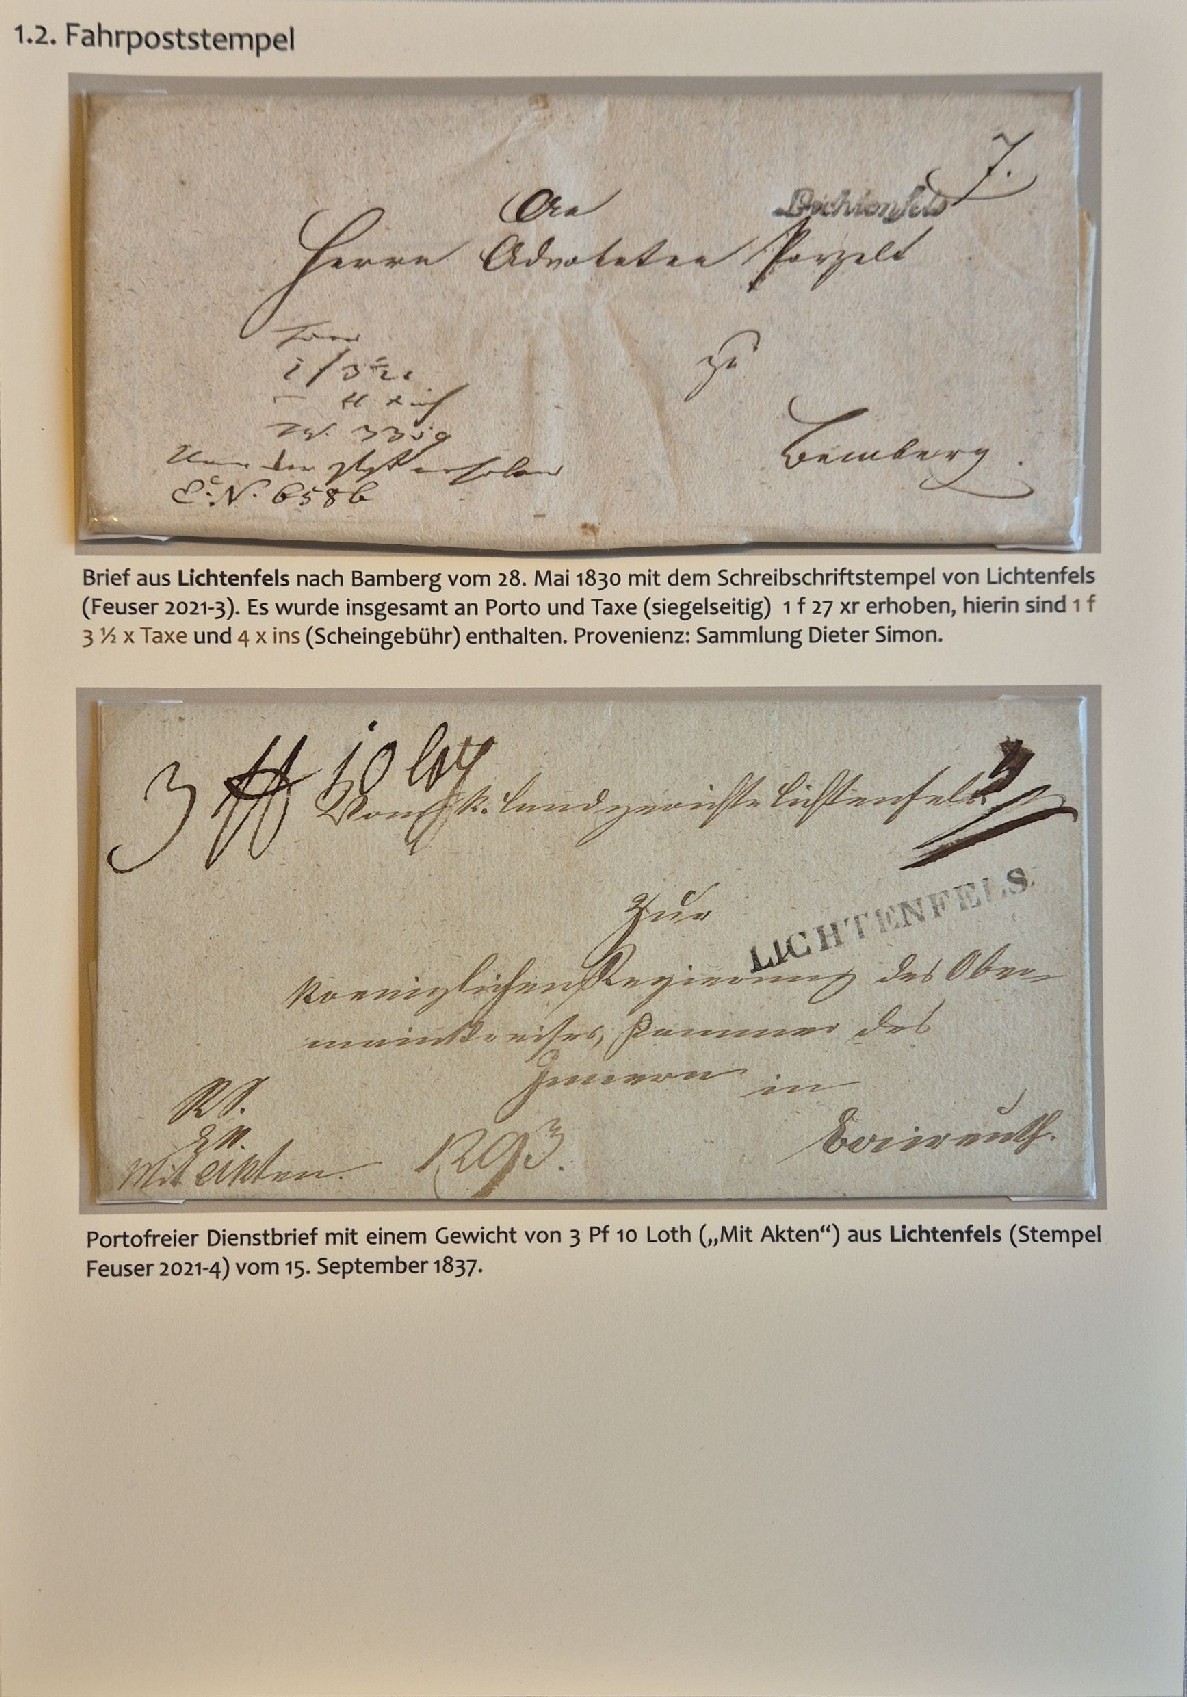 1.2. Fahrpoststempel
7.
An
Lichtenfels
Herrn Advokaten Porzelt
zu
Bamberg.
C. N. 6586
Brief aus Lichtenfels nach Bamberg vom 28. Mai 1830 mit dem Schreibschriftstempel von Lichtenfels
(Feuser 2021-3). Es wurde insgesamt an Porto und Taxe (siegelseitig) 1 f 27 xr erhoben, hierin sind 1 f
3 ½ x Taxe und 4 x ins (Scheingebühr) enthalten. Provenienz: Sammlung Dieter Simon.
3 ℔ 10 Loth
Vom K. Landgerichte Lichtenfels
Zur
LICHTENFELS.
Koeniglichen Regierung des Ober-
mainkreises, Kammer des
Innern in
RS.
Mit Akten. 1293.
Baireuth.
Portofreier Dienstbrief mit einem Gewicht von 3 Pf 10 Loth („Mit Akten“) aus Lichtenfels (Stempel
Feuser 2021-4) vom 15. September 1837.